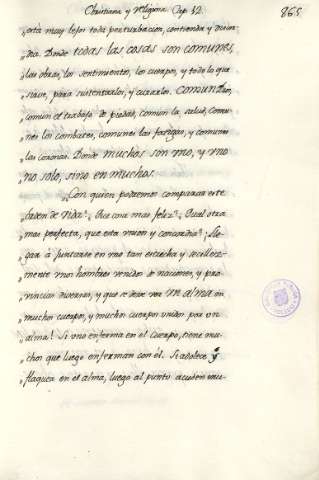 Christiana y Religiosa Cap. 32. 865
„ esta muy lejos toda perturbacion, contienda y
„ Donde todas las cosas son comunes,
„ las obras, los sentimientos, los cuerpos, y todo lo que
„ sirve, para sustentarlos, y curarlos. Comun Dios,
„ comun el trabajo de piedad, comun la salud, comu-
„ nes los combates, comunes las fatigas, y comunes
„ las coronas. Donde muchos son uno, y uno
„ no solo, sino en muchos.
„ Con quien podremos comparar este
„ orden de vida? Que cosa mas feliz? Qual otra
„ mas perfecta, que esta union y concordia? Lle-
„ gar á juntarse en uno tan estrecha y
„ mente unos hombres venidos de naciones, y pro-
„ vincias diversas, y que se dexe ver un alma en
„ muchos cuerpos, y muchos cuerpos unidos por un
„ alma! Si uno enferma en el cuerpo, tiene mu-
„ chos que luego enferman con él. Si adolece y
„ flaquea en el alma, luego al punto acuden mu-